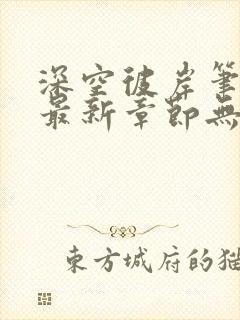 深空彼岸筆
最新章節無
東方城府的猫